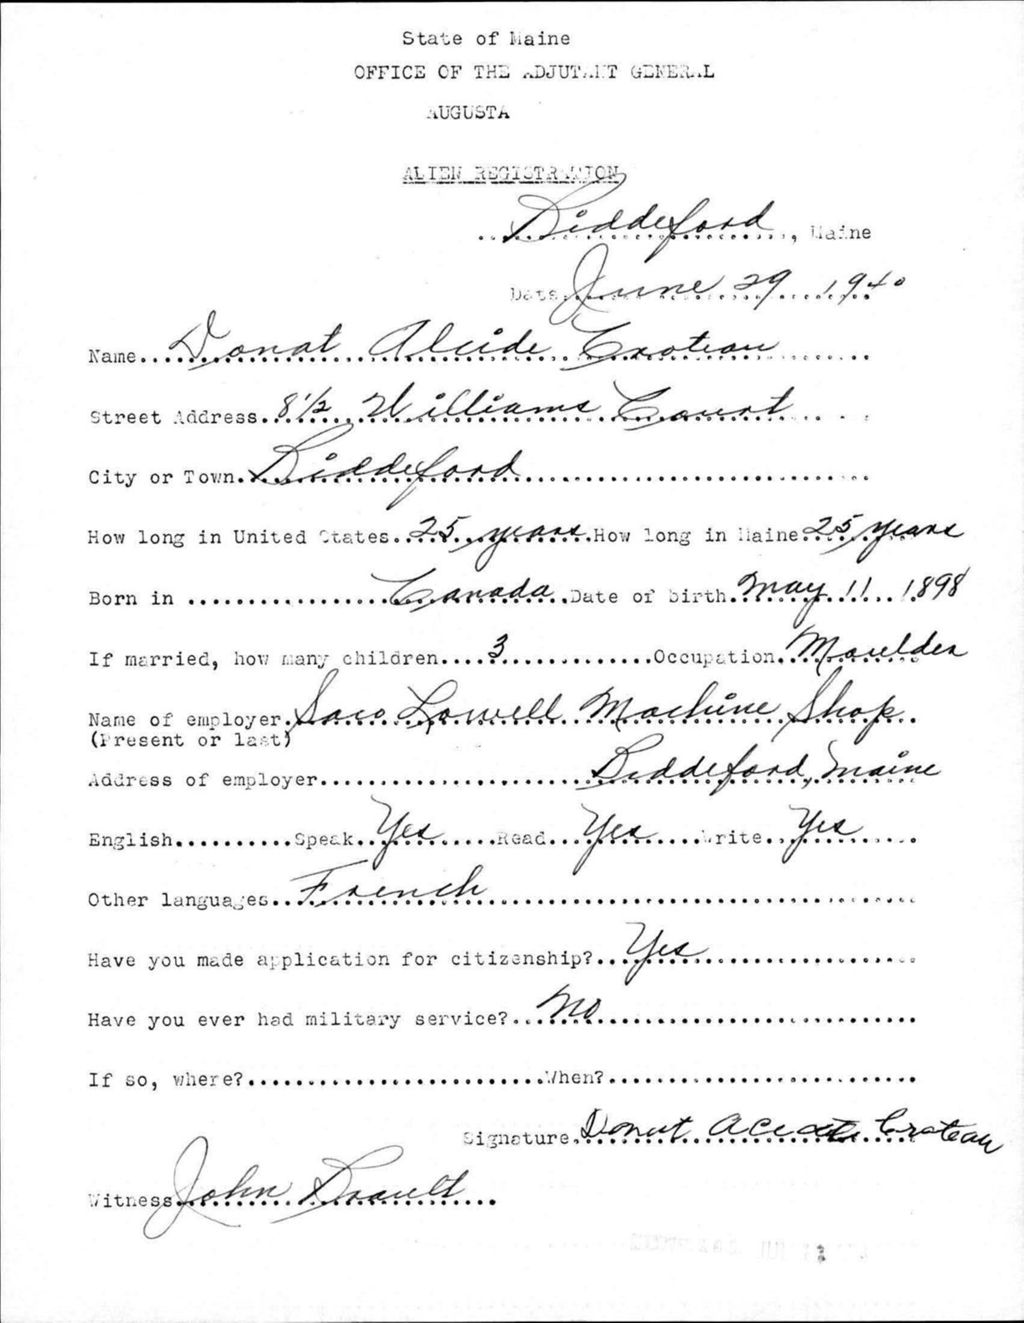 State of Maine
OFFICE OF THE ADJUTANT GENERAL
AUGUSTA
ALIEN REGISTRATION
Biddeford, Maine
Date June 29 1940
Name Donat Alcide Croteau
Street Address 8 1/2 Williams Court
City or Town Biddeford
How long in United States 25 years How long in Maine 25 years
Born in Canada Date of birth May 11 1898
If married, how many children 3 Occupation Moulder
Name of employer Saco Lowell Machine Shop
(Present or last)
Address of employer Biddeford, Maine
English Speak Yes Read Yes Write Yes
Other languages French
Have you made application for citizenship? Yes
Have you ever had military service? No
If so, where? When?
Signature Donat Alcide Croteau
Witness John Brault